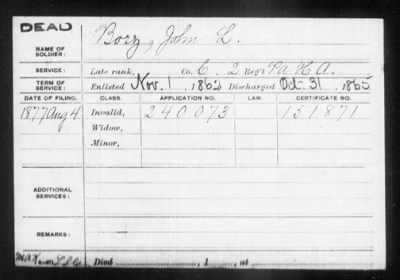 DEAD
NAME OF SOLDIER: Boez, John L.
SERVICE: Late rank, Co. C, 2 Reg't Pa. H. A.
TERM OF SERVICE: Enlisted Nov. 1, 1862 Discharged Oct. 31, 1865
DATE OF FILING. CLASS. APPLICATION NO. LAW. CERTIFICATE NO.
1877 Aug 4. Invalid, 240073 151871
Widow,
Minor,
ADDITIONAL SERVICES:
REMARKS:
Died , 1 , at